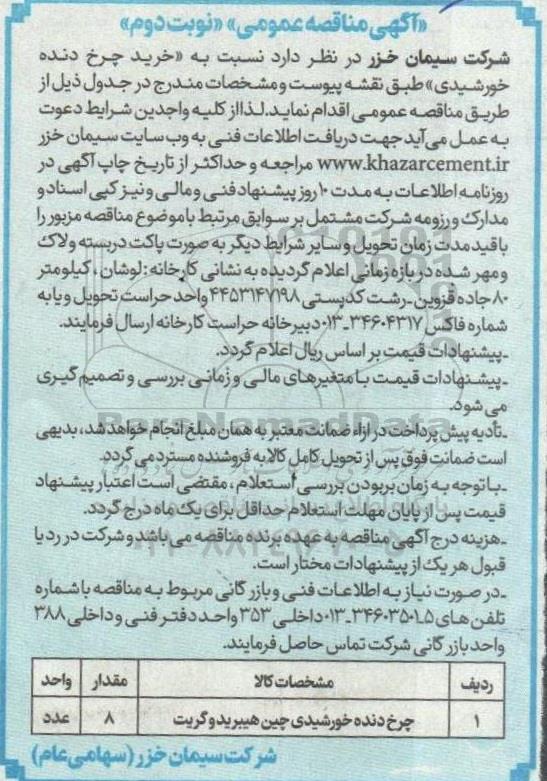 «آگهی مناقصه عمومی» «نوبت دوم»
شرکت سیمان خزر در نظر دارد نسبت به «خرید چرخ دنده
خورشیدی» طبق نقشه پیوست و مشخصات مندرج در جدول ذیل از
طریق مناقصه عمومی اقدام نماید. لذا از کلیه واجدین شرایط دعوت
به عمل می آید جهت دریافت اطلاعات فنی به وب سایت سیمان خزر
www.khazarcement.ir مراجعه و حداکثر از تاریخ چاپ آگهی در
روزنامه اطلاعات به مدت ۱۰ روز پیشنهاد فنی و مالی و نیز کپی اسناد و
مدارک و رزومه شرکت مشتمل بر سوابق مرتبط با موضوع مناقصه مزبور را
با قید مدت زمان تحویل و سایر شرایط دیگر به صورت پاکت دربسته و لاک
و مهر شده در بازه زمانی اعلام گردیده به نشانی کارخانه: لوشان، کیلومتر
۸۰ جاده قزوین ـ رشت کدپستی ۴۴۵۳۱۴۷۱۹۸ واحد حراست تحویل و یا به
شماره فاکس ۳۴۶۰۴۳۱۷ـ۰۱۳ دبیرخانه حراست کارخانه ارسال فرمایند.
ـ پیشنهادات قیمت بر اساس ریال اعلام گردد.
ـ پیشنهادات قیمت با متغیرهای مالی و زمانی بررسی و تصمیم گیری
می شود.
ـ تأدیه پیش پرداخت در ازاء ضمانت معتبر به همان مبلغ انجام خواهد شد، بدیهی
است ضمانت فوق پس از تحویل کامل کالا به فروشنده مسترد می گردد.
ـ با توجه به زمان بر بودن بررسی استعلام، مقتضی است اعتبار پیشنهاد
قیمت پس از پایان مهلت استعلام حداقل برای یک ماه درج گردد.
ـ هزینه درج آگهی مناقصه به عهده برنده مناقصه می باشد و شرکت در رد یا
قبول هر یک از پیشنهادات مختار است.
ـ در صورت نیاز به اطلاعات فنی و بازرگانی مربوط به مناقصه با شماره
تلفن های ۵ـ۳۴۶۰۳۵۰۱ـ۰۱۳ داخلی ۳۵۳ واحد دفتر فنی و داخلی ۳۸۸
واحد بازرگانی شرکت تماس حاصل فرمایند.
ردیف مشخصات کالا مقدار واحد
۱ چرخ دنده خورشیدی چین هیبرید و گریت ۸ عدد
شرکت سیمان خزر (سهامی عام)
ParsNamadData